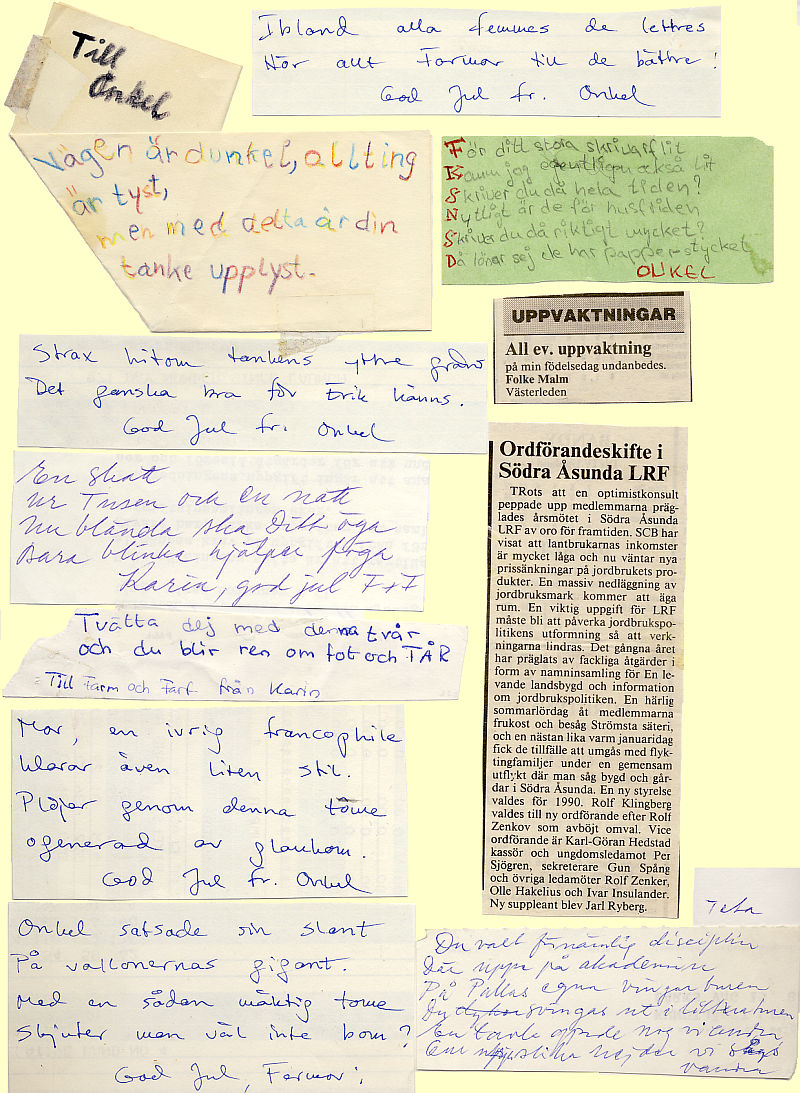 Till
Onkel
Ibland alla femmes de lettres
Hör allt Farmor till de bättre!
God Jul fr. Onkel
Vägen är dunkel, allting
är tyst,
men med detta är din
tanke upplyst.
För ditt stora skrivarflit
Kamm jag egentligen också lit
Skriver du då hela tiden?
Nyttigt är de för husfriden
Skriver du då riktigt mycket?
Då lönar sej de har papper-stycket
ONKEL
UPPVAKTNINGAR
All ev. uppvaktning
på min födelsedag undanbedes.
Folke Malm
Västerleden
Strax hitom tankens yttre gräns
Det ganska bra för Erik känns.
God Jul fr. Onkel
En skatt
ur Tusen och en natt
Nu blända ska Ditt öga
Bara blinka hjälper föga
Karin, god jul F+F
Tvätta dej med denna tvår
och du blir ren om fot och TÅR
Till Farm och Farf från Karin
Mor, en ivrig francophile
klarar även liten stil.
Plöjer genom denna tome
ogenerad av glaukom.
God Jul fr. Onkel
Onkel satsade sin slant
På vallonernas gigant.
Med en sådan mäktig tome
Skjuter man väl inte bom?
God Jul, Farmor!
Ordförandeskifte i
Södra Åsunda LRF
TRots att en optimistkonsult
peppade upp medlemmarna präg-
lades årsmötet i Södra Åsunda
LRF av oro för framtiden. SCB har
visat att lantbrukarnas inkomster
är mycket låga och nu väntar nya
prissänkningar på jordbrukets pro-
dukter. En massiv nedläggning av
jordbruksmark kommer att äga
rum. En viktig uppgift för LRF
måste bli att påverka jordbrukspo-
litikens utformning så att verk-
ningarna lindras. Det gångna året
har präglats av fackliga åtgärder i
form av namninsamling för En le-
vande landsbygd och information
om jordbrukspolitiken. En härlig
sommarlördag åt medlemmarna
frukost och besåg Strömsta säteri,
och en nästan lika varm januaridag
fick de tillfälle att umgås med flyk-
tingfamiljer under en gemensam
utflykt där man såg bygd och går-
dar i Södra Åsunda. En ny styrelse
valdes för 1990. Rolf Klingberg
valdes till ny ordförande efter Rolf
Zenkov som avböjt omval. Vice
ordförande är Karl-Göran Hedstad
kassör och ungdomsledamot Per
Sjögren, sekreterare Gun Spång
och övriga ledamöter Rolf Zenker,
Olle Hakelius och Ivar Insulander.
Ny suppleant blev Jarl Ryberg.
Teta
Du valt förnämlig disciplin
Där uppe på akademin
På Pallas egna vingar buren
Du svingas ut i litteraturen
En tavla nog vi andra
Om slika höjder vi
vandra